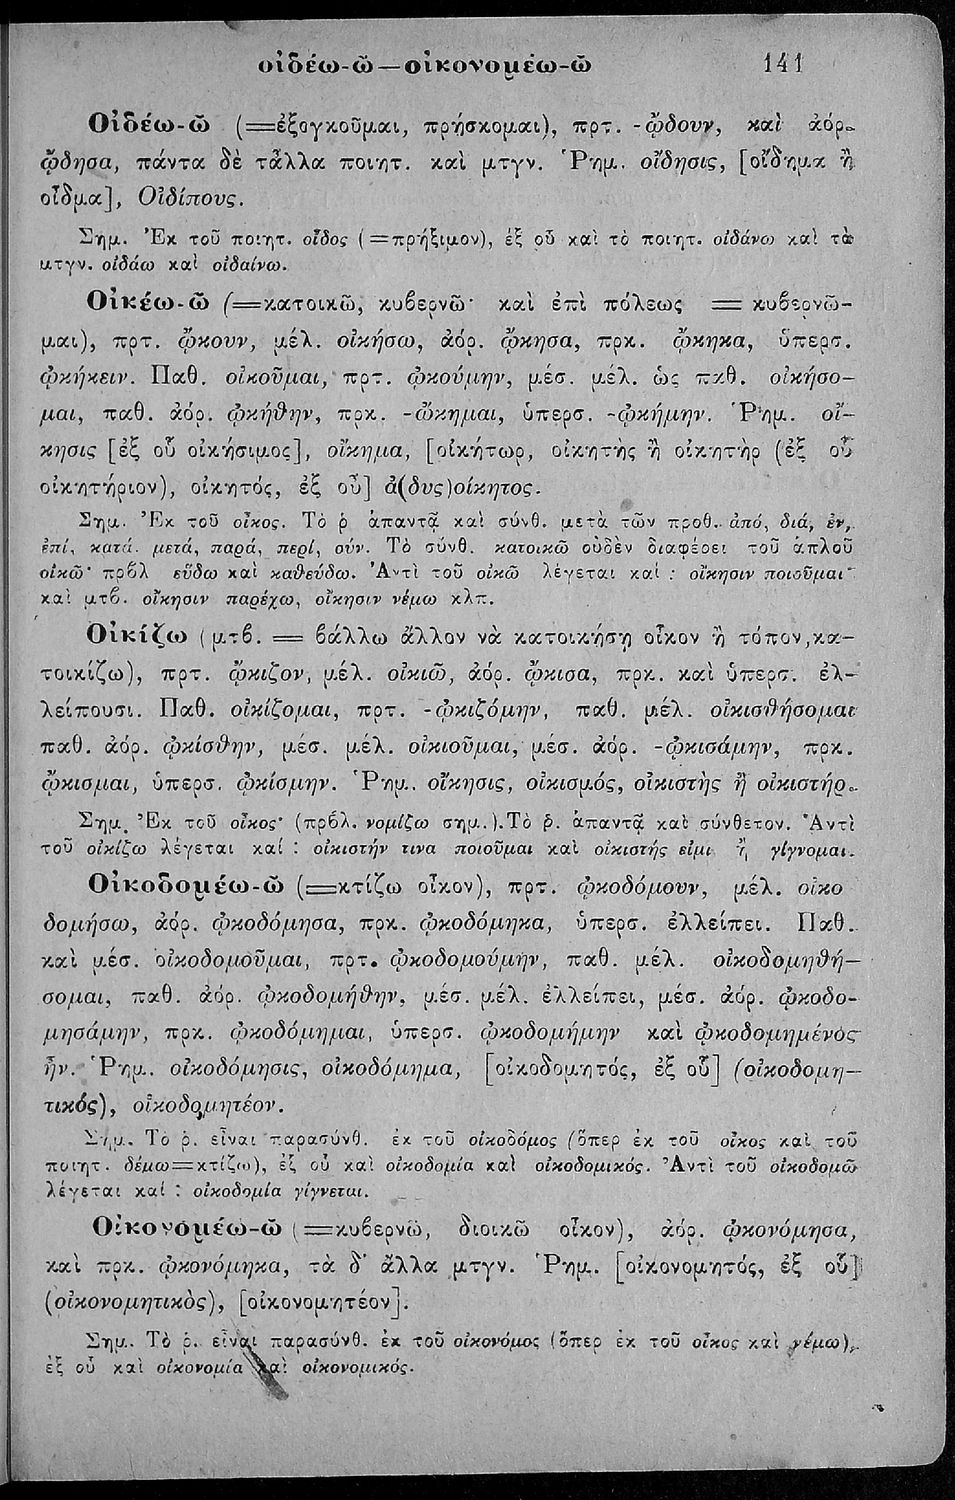 οἰδέω-ῶ—οἰκονομέω-ῶ 141
Οἰδέω-ῶ (=ἐξογκοῦμαι, πρήσκομαι), πρτ. -ᾤδουν, καὶ ἀόρ.
ᾤδησα, πάντα δὲ τἆλλα ποιητ. καὶ μτγν. Ῥημ. οἴδησις, [οἴδημα ἢ
οἶδμα], Οἰδίπους.
Σημ. Ἐκ τοῦ ποιητ. οἶδος (=πρήξιμον), ἐξ οὗ καὶ τὸ ποιητ. οἰδάνω καὶ τὰ
μτγν. οἰδάω καὶ οἰδαίνω.
Οἰκέω-ῶ (=κατοικῶ, κυβερνῶ· καὶ ἐπὶ πόλεως = κυβερνῶ-
μαι), πρτ. ᾤκουν, μέλ. οἰκήσω, ἀόρ. ᾤκησα, πρκ. ᾤκηκα, ὑπερσ.
ᾠκήκειν. Παθ. οἰκοῦμαι, πρτ. ᾠκούμην, μέσ. μέλ. ὡς παθ. οἰκήσο-
μαι, παθ. ἀόρ. ᾠκήθην, πρκ. -ᾤκημαι, ὑπερσ. -ᾠκήμην. Ῥημ. οἴ-
κησις [ἐξ οὗ οἰκήσιμος], οἴκημα, [οἰκήτωρ, οἰκητὴς ἢ οἰκητὴρ (ἐξ οὗ
οἰκητήριον), οἰκητός, ἐξ οὗ] ἀ(δυς)οίκητος.
Σημ. Ἐκ τοῦ οἶκος. Τὸ ῥ ἀπαντᾷ καὶ σύνθ. μετὰ τῶν προθ. ἀπό, διά, ἐν,
ἐπί, κατά, μετά, παρά, περί, σύν. Τὸ σύνθ. κατοικῶ οὐδὲν διαφέρει τοῦ ἁπλοῦ
οἰκῶ· πρβλ εὕδω καὶ καθεύδω. Ἀντὶ τοῦ οἰκῶ λέγεται καί : οἴκησιν ποιοῦμαι·
καὶ μτβ. οἴκησιν παρέχω, οἴκησιν νέμω κλπ.
Οἰκίζω (μτβ. = βάλλω ἄλλον νὰ κατοικήσῃ οἶκον ἢ τόπον,κα-
τοικίζω), πρτ. ᾤκιζον, μέλ. οἰκιῶ, ἀόρ. ᾤκισα, πρκ. καὶ ὑπερσ. ἐλ-
λείπουσι. Παθ. οἰκίζομαι, πρτ. -ᾠκιζόμην, παθ. μέλ. οἰκισθήσομαι
παθ. ἀόρ. ᾠκίσθην, μέσ. μέλ. οἰκιοῦμαι, μέσ. ἀόρ. -ᾠκισάμην, πρκ.
ᾤκισμαι, ὑπερσ. ᾠκίσμην. Ῥημ. οἴκησις, οἰκισμός, οἰκιστὴς ἢ οἰκιστήρ.
Σημ. Ἐκ τοῦ οἶκος· (πρβλ. νομίζω σημ.).Τὸ ῥ. ἀπαντᾷ καὶ σύνθετον. Ἀντὶ
τοῦ οἰκίζω λέγεται καί : οἰκιστήν τινα ποιοῦμαι καὶ οἰκιστής εἰμι ἢ γίγνομαι.
Οἰκοδομέω-ῶ (=κτίζω οἶκον), πρτ. ᾠκοδόμουν, μέλ. οἰκο
δομήσω, ἀόρ. ᾠκοδόμησα, πρκ. ᾠκοδόμηκα, ὑπερσ. ἐλλείπει. Παθ.
καὶ μέσ. οἰκοδομοῦμαι, πρτ. ᾠκοδομούμην, παθ. μέλ. οἰκοδομηθή-
σομαι, παθ. ἀόρ. ᾠκοδομήθην, μέσ. μέλ. ἐλλείπει, μέσ. ἀόρ. ᾠκοδο-
μησάμην, πρκ. ᾠκοδόμημαι, ὑπερσ. ᾠκοδομήμην καὶ ᾠκοδομημένος
ἦν. Ῥημ. οἰκοδόμησις, οἰκοδόμημα, [οἰκοδομητός, ἐξ οὗ] (οἰκοδομη-
τικός), οἰκοδομητέον.
Σημ. Τὸ ῥ. εἶναι παρασύνθ. ἐκ τοῦ οἰκοδόμος (ὅπερ ἐκ τοῦ οἶκος καὶ τοῦ
ποιητ. δέμω=κτίζω), ἐξ οὗ καὶ οἰκοδομία καὶ οἰκοδομικός. Ἀντὶ τοῦ οἰκοδομῶ
λέγεται καί : οἰκοδομία γίγνεται.
Οἰκονομέω-ῶ (=κυβερνῶ, διοικῶ οἶκον), ἀόρ. ᾠκονόμησα,
καὶ πρκ. ᾠκονόμηκα, τὰ δ' ἄλλα μτγν. Ῥημ. [οἰκονομητός, ἐξ οὗ]
(οἰκονομητικὸς), [οἰκονομητέον].
Σημ. Τὸ ῥ. εἶναι παρασύνθ. ἐκ τοῦ οἰκονόμος (ὅπερ ἐκ τοῦ οἶκος καὶ νέμω),
ἐξ οὗ καὶ οἰκονομία καὶ οἰκονομικός.